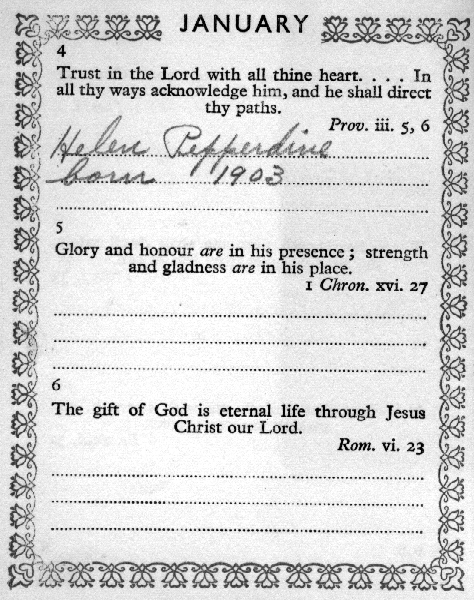 JANUARY
4
Trust in the Lord with all thine heart. . . . In
all thy ways acknowledge him, and he shall direct
thy paths.
Prov. iii. 5, 6
Helen Pepperdine
born 1903
5
Glory and honour are in his presence ; strength
and gladness are in his place.
1 Chron. xvi. 27
6
The gift of God is eternal life through Jesus
Christ our Lord.
Rom. vi. 23